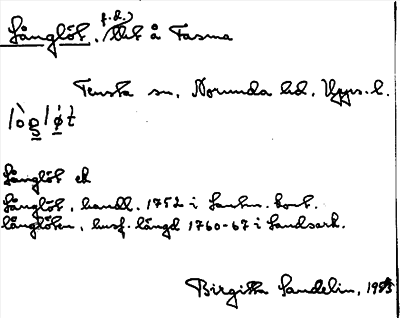 Långlöt, f.d. lht å Fasma
Tensta sn, Norunda hd, Upps. l.
Långlöt ek
Långlöt, handl. 1752 i Lantm. kont.
långlöten, husf. längd 1760-67 i Landsark.
Birgitta Sandelin, 1953